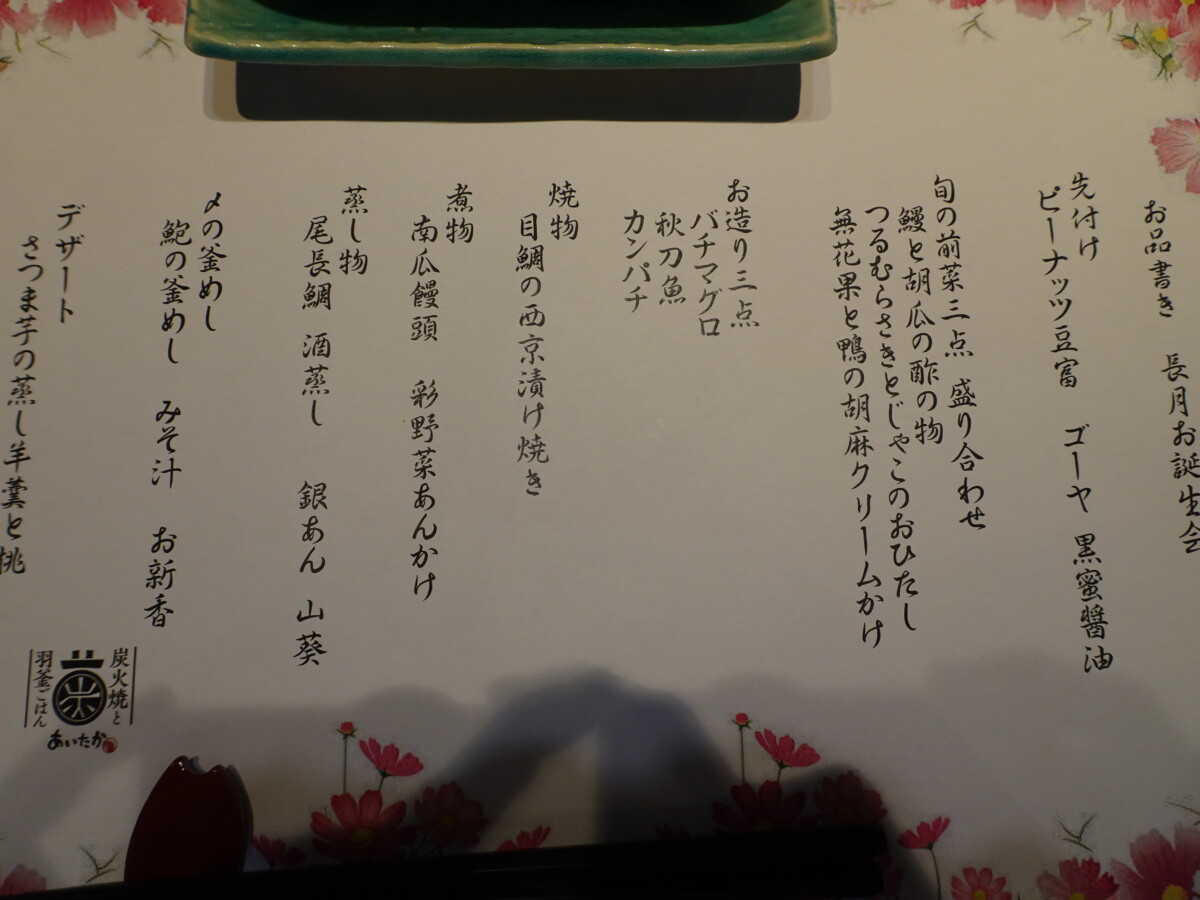 お品書き　長月お誕生会
先付け
ピーナッツ豆富　ゴーヤ　黒蜜醤油
旬の前菜三点　盛り合わせ
鰻と胡瓜の酢の物
つるむらさきとじゃこのおひたし
無花果と鴨の胡麻クリームかけ
お造り三点
バチマグロ
秋刀魚
カンパチ
焼物
目鯛の西京漬け焼き
煮物
南瓜饅頭　彩野菜あんかけ
蒸し物
尾長鯛　酒蒸し　銀あん　山葵
〆の釜めし
鮑の釜めし　みそ汁　お新香
デザート
さつま芋の蒸し羊羹と桃
炭火焼と
羽釜ごはん
あいたか